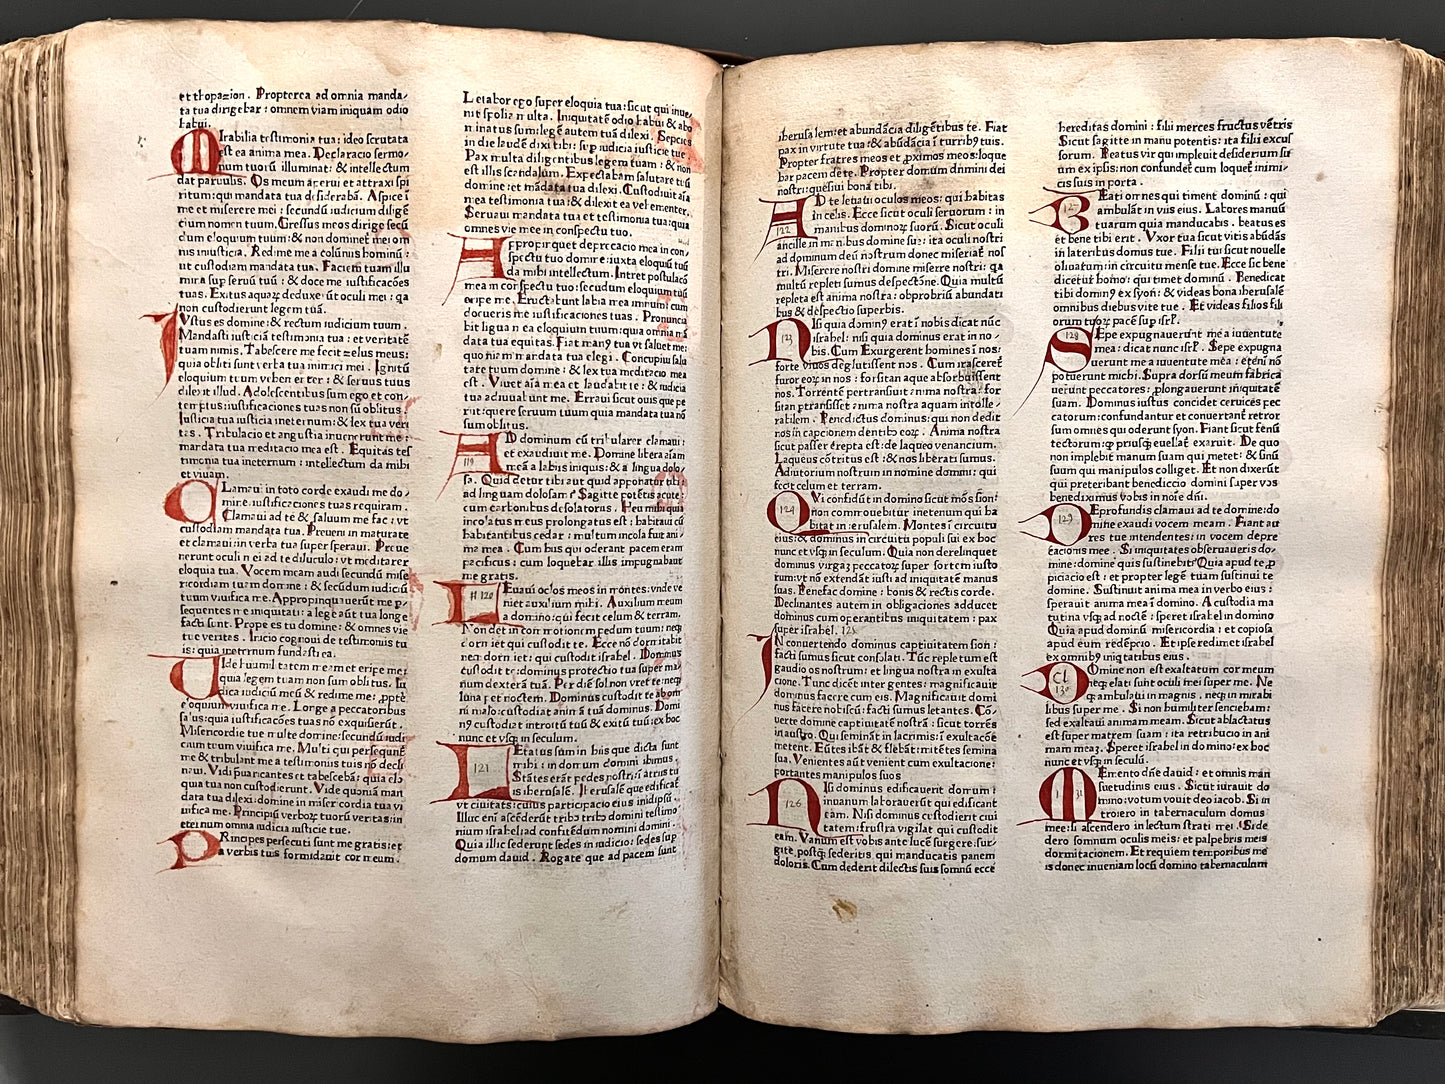 et thopazion. Propterea ad omnia manda⸗
ta tua dirigebar : omnem viam iniquam odio
habui.
MIrabilia testimonia tua : ideo scrutata
est ea anima mea. Declaracio sermo⸗
num tuorū illuminat : & intellectum
dat parvulis. Os meum aperui et attraxi spi
ritum : qui mandata tua desiderabā. Aspice ī
me et miserere mei : secundū iudicium diligē
cium nomen tuum. Gressus meos dirige secū
dum eloquium tuum : & non dominet mei om
nis iniusticia. Redime me a calūnijs hominū :
ut custodiam mandata tua. Faciem tuam illu
mina sup servū tuū : & doce me iustificacōes
tuas. Exitus aquaꝝ deduxerūt oculi mei : qa
non custodierunt legem tuā.
IVstus es domine : & rectum iudicium tuum.
Mandasti iusticiā testimonia tua : et veritatē
tuam nimis. Tabescere me fecit zelus meus :
quia obliti sunt verba tua inimici mei. Ignitū
eloquium tuum vehementer : & servus tuus
dilexit illud. Adolescentulus sum ego et con⸗
temptus : iustificaciones tuas non sū oblitus.
Iusticia tua iusticia ineternum : & lex tua veri
tas. Tribulacio et angustia invenerunt me :
mandata tua meditacio mea est. Equitas tes
timonia tua ineternum : intellectum da mihi
et vivam.
CLamavi in toto corde exaudi me do⸗
mine : iustificaciones tuas requiram.
Clamaui ad te & saluum me fac : vt
custodiam mandata tua. Preveni in maturate
et clamaui : in verba tua super speraui. Preue
nerunt oculi mei ad te diluculo : vt meditarer
eloquia tua. Vocem meam audi secundū mise
ricordiam tuam domine : & secūdum iudiciū
tuum viuifica me. Appropinquauerūt me p⸗
sequentes me iniquitati : a lege aūt tua longe
facti sunt. Prope es tu domine : & omnes vie
tue veritas. Inicio cognoui de testimonijs tu
is : quia ineternum fundasti ea.
VIde humilitatem meam et eripe me :
quia legem tuam non sum oblitus. Iu
dica iudiciū meū & redime me : ꝓpte
eloquium viuifica me. Longe a peccatoribus
salus : quia iustificacōes tuas nō exquisierūt.
Misericordie tue multe domine : secundū iudi
cium tuum viuifica me. Multi qui persequunt̄
me & tribulant me : a testimonijs tuis nō decli
naui. Vidi p̄uaricantes et tabescebā : quia elo
quia tua non custodierunt. Vide quoniā man
data tua dilexi : domine in misericordia tua vi
uifica me. Principiū verboꝝ tuorū veritas : in
eternum omnia iudicia iusticie tue.
PRincipes persecuti sunt me gratis : et
a verbis tuis formidauit cor meum.
Letabor ego super eloquia tua : sicut qui inue⸗
nit spolia multa. Iniquitatē odio habui & abo
minatus sum : legē autem tuā dilexi. Sepcies
in die laudē dixi tibi : sup iudicia iusticie tue.
Pax multa diligentibus legem tuam : & non
est illis scandalum. Expectabam salutare tuū
domine : et mādata tua dilexi. Custodiuit aīa
mea testimonia tua : & dilexit ea vehementer.
Seruaui mandata tua et testimonia tua : quia
omnes vie mee in conspectu tuo.
APpropinquet deprecacio mea in con⸗
spectu tuo domine : iuxta eloquiū tuū
da mihi intellectum. Intret postulacō
mea in conspectu tuo : secundum eloquium tuū
eripe me. Eructabunt labia mea imnum : cum
docueris me iustificaciones tuas. Pronuncia
bit ligua mea eloquium tuum : quia omnia mā
data tua equitas. Fiat manꝰ tua vt saluet me :
quoniam mandata tua elegi. Concupiui salu
tare tuum domine : & lex tua meditacio mea
est. Viuet aīa mea et laudabit te : & iudicia
tua adiuuabunt me. Erraui sicut ouis que pe
rijt : quere seruum tuum quia mandata tua nō
sum oblitus.
AD dominum cū tribularer clamaui :
et exaudiuit me. Domine libera aīam
meā a labijs iniquis : & a lingua dolo⸗
119
sa. Quid detur tibi aut quid apponatur tibi :
ad linguam dolosam ? Sagitte potētis acute :
cum carbonibus desolatorijs. Heu mihi quia
incolatus meus prolongatus est : habitaui cū
habitantibus cedar : multum incola fuit ani⸗
ma mea. Cum hijs qui oderant pacem eram
pacificus : cum loquebar illis impugnabant
me gratis.
LEuaui oclos meos in montes : vnde ve
niet auxilium mihi. Auxilium meum
a domino : qui fecit celum & terram.
H 120
Non det in commotionem pedum tuum : neqꝫ
dormiet qui custodit te. Ecce nō dormitabit
neqꝫ dormiet : qui custodit israhel. Dominus
custodit te : dominus protectio tua super ma⸗
num dexterā tuā. Per diē sol non vret te : neqꝫ
luna per noctem. Dominus custodit te ab om
ni malo : custodiat animā tuā dominus. Domi
nꝰ custodiat introitū tuū & exitū tuū : ex hoc
nunc et vsqꝫ in seculum.
LEtatus sum in hijs que dicta sunt
mihi : in domum domini ibimus.
Stātes erāt pedes nostri : ī atrijs tu
is iherusalē. Iherusalē que edificat̄
121
vt ciuitas : cuius participacio eius inidipsū.
Illuc enī ascēderūt tribꝰ tribꝰ domini testimo
nium israhel : ad confitēdum nomini domini.
Quia illic sederunt sedes in iudicio : sedes sup
domum dauid. Rogate que ad pacem sunt
iherusalem : et abundācia diligētibus te. Fiat
pax in virtute tua : & abūdācia ī turribꝰ tuis.
Propter fratres meos et ꝓximos meos : loque
bar pacem de te. Propter domum domini dei
nostri : quesiui bona tibi.
AD te leuaui oculos meos : qui habitas
in celis. Ecce sicut oculi seruorum : in
manibus dominoꝝ suorū. Sicut oculi
122
ancille in manibus domine sue : ita oculi nostri
ad dominum deū nostrum donec misereat̄ nos
tri. Miserere nostri domine miserere nostri : qa
multū repleti sumus despectōne. Quia multū
repleta est anima nostra : obprobriū abundāti
bus & despectio superbis.
NIsi quia dominꝰ erat ī nobis dicat nūc
israhel : nisi quia dominus erat in no⸗
bis. Cum Exurgerent homines ī nos :
123
forte viuos deglutissent nos. Cum irasceret̄
furor eoꝝ in nos : forsitan aqua absorbuissent
nos. Torrentē pertransiuit anima nostra : for
sitan ptransisset anima nostra aquam intolle⸗
rabilem. Benedictus dominus : qui non dedit
nos in capcionem dentibꝰ eoꝝ. Anima nostra
sicut passer erepta est : de laqueo venancium.
Laqueus cōtritus est : & nos liberati sumus.
Adiutorium nostrum in nomine domini : qui
fecit celum et terram.
QVi confidūt in domino sicut mōs sion :
non commouebitur inetenum qui ha
bitat in iherusalem. Montes ī circuitu
124
eius : & dominus in circuitu populi sui ex hoc
nunc et vsqꝫ in seculum. Quia non derelinquet
dominus virgaꝫ peccatoꝝ super sortem iusto
rum : vt nō extendāt iusti ad iniquitatē manus
suas. Benefac domine : bonis & rectis corde.
Declinantes autem in obligaciones adducet
dominus cum operantibus iniquitatem : pax
super israhel. 125
IN conuertendo dominus captiuitatem sion :
facti sumus sicut consolati. Tūc repletum est
gaudio os nostrum : et lingua nostra in exulta
cione. Tunc dicēt inter gentes : magnificauit
dominus facere cum eis. Magnificauit domi
nus facere nobiscū : facti sumus letantes. Cō⸗
uerte domine captiuitatē nostrā : sicut torrēs
in austro. Qui semināt in lacrimis : ī exultacōe
metent. Eūtes ibāt & flebāt : mitētes semina
sua. Venientes aūt venient cum exultacione :
portantes manipulos suos
NIsi dominus edificauerit domum :
inuanum laborauerūt qui edificant
eam. Nisi dominus custodierit ciui
tatem : frustra vigilat qui custodit
126
eam. Vanum est vobis ante lucē surgere : sur⸗
gite postqꝫ sederitis qui manducatis panem
doloris. Cum dederit dilectis suis somnū ecce
hereditas domini : filij merces fructus vētris
Sicut sagitte in manu potentis : ita filij excus
sorum. Beatus vir qui impleuit desiderium su
um ex ipsis : non confundet̄ cum loquet̄ inimi⸗
cis suis in porta.
BEati omnes qui timent dominū : qui
ambulāt in vijs eius. Labores manuū
tuarum quia manducabis. beatus es
127
et bene tibi erit. Vxor tua sicut vitis abūdās
in lateribus domus tue. Filij tui sicut nouelle
oliuatum : in circuitu mense tue. Ecce sic bene
dicetur homo : qui timet dominū. Benedicat
tibi dominꝰ ex syon : & videas bona iherusalē
omnibus diebus vite tue. Et videas filios fili
orum tuoꝝ pacē sup isrl̄.
SEpe expugnauerunt me a iuuentute
mea : dicat nunc isrl̄. Sepe expugna
uerunt me a iuuentute mea : etenī nō
128
potuerunt michi. Supra dorsū meum fabrica
uerunt peccatores : plongauerunt iniquitatē
suam. Dominus iustus concidet ceruices pec
catorum : confundantur et conuertant̄ retror
sum omnes qui oderunt syon. Fiant sicut fenū
tectorum : qꝫ priusqꝫ euellat̄ exaruit. De quo
non implebit manum suam qui metet : & sinū
suum qui manipulos colliget. Et non dixerūt
qui preteribant benediccio domini super vos
benediximus vobis in noīe dn̄i.
DEprofundis clamaui ad te domine : do
mine exaudi vocem meam. Fiant au
res tue intendentes : in vocem depre
129
cacionis mee. Si iniquitates obseruaueris do⸗
mine : domine quis sustinebit? Quia apud te ꝓ
piciacio est : et propter legē tuam sustinui te
domine. Sustinuit anima mea in verbo eius :
sperauit anima mea ī domino. A custodia ma
tutina vsqꝫ ad noctē : speret israhel in domino
Quia apud dominū misericordia : et copiosa
apud eum redēpcio. Et ipse redimet israhel
ex omnibꝰ iniqtatibus eius.
DOmine non est exaltatum cor meum
neqꝫ elati sunt oculi mei super me. Ne
qꝫ ambulaui in magnis, neqꝫ in mirabi
Cl
130
libus super me. Si non humiliter senciebam :
sed exaltaui animam meam. Sicut ablactatus
est super matrem suam : ita retribucio in ani
mam meaꝫ. Speret israhel in domino : ex hoc
nunc et vsqꝫ in seculū.
MEmento dn̄e dauid : et omnis man
suetudinis eius. Sicut iurauit do
mino : votum vouit deo iacob. Si in
troiero in tabernaculum domus
131
mee : si ascendero in lectum strati mei. Si de
dero somnum oculis meis : et palpebris meis
dormitacionem. Et requiem temporibus me
is donec inueniam locū domino tabernaculum